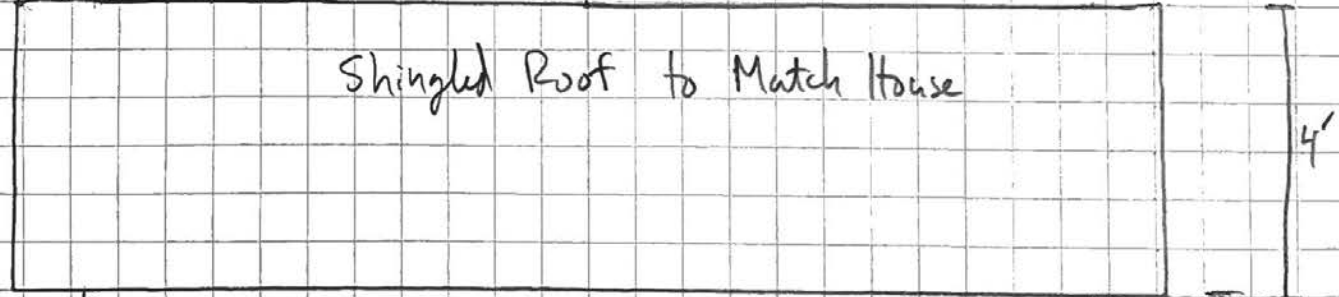 Shingled Roof to Match House
4'